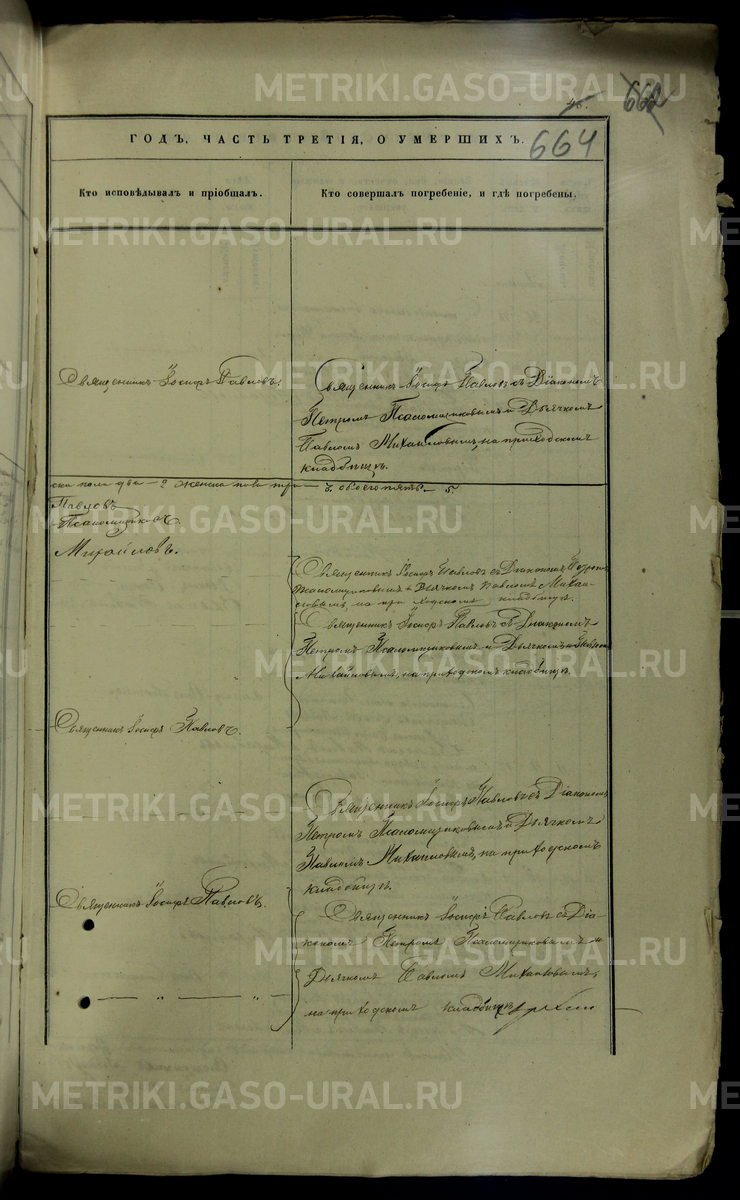 METRIKI.GASO-URAL.RU
45.
662
664
ГОДЪ, ЧАСТЬ ТРЕТІЯ, О УМЕРШИХЪ.
Кто исповѣдывалъ и пріобщалъ.
Кто совершалъ погребеніе, и гдѣ погребены.
Священникъ Іосифъ Павловъ.
Священникъ Іосифъ Павловъ съ Діакономъ
Петромъ Псаломщиковымъ и Дьячкомъ
Павломъ Михайловымъ, на приходскомъ
кладбищѣ.
ска пола два — 2 женска пола три —
обоего пять — 5.
Павловъ
Псаломщиковъ
Михайловъ.
Священникъ Іосифъ Павловъ съ Діакономъ Петромъ
Псаломщиковымъ и Дьячкомъ Павломъ Михай-
ловымъ, на приходскомъ кладбищѣ.
Священникъ Іосифъ Павловъ съ Діакономъ
Петромъ Псаломщиковымъ и Дьячкомъ Павломъ
Михайловымъ, на приходскомъ кладбищѣ.
Священникъ Іосифъ Павловъ.
Священникъ Іосифъ Павловъ съ Діакономъ
Петромъ Псаломщиковымъ и Дьячкомъ
Павломъ Михайловымъ, на приходскомъ
кладбищѣ.
Священникъ Іосифъ Павловъ.
Священникъ Іосифъ Павловъ съ Діа-
кономъ Петромъ Псаломщиковымъ и
Дьячкомъ Павломъ Михайловымъ,
на приходскомъ кладбищѣ
— „ — „ —